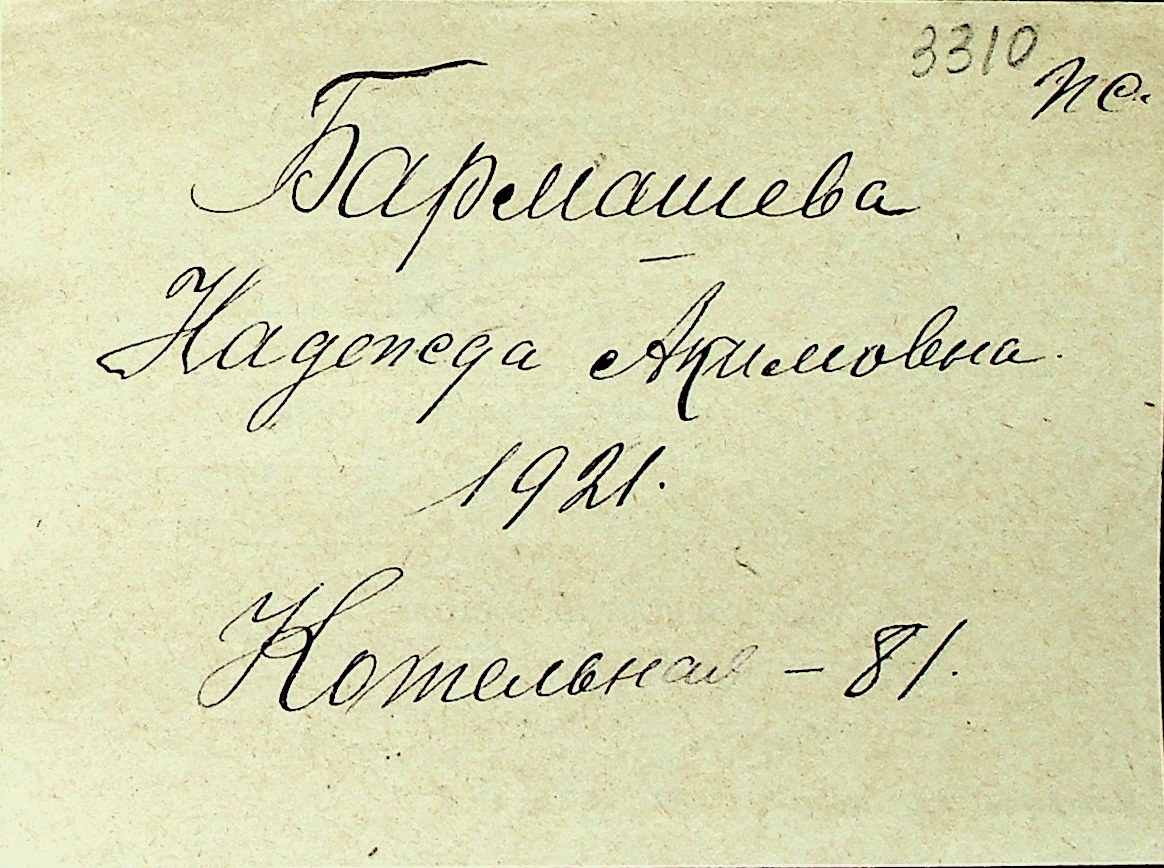 3310 пс.
Бармашева
Надежда Акимовна.
1921.
Котельная – 81.